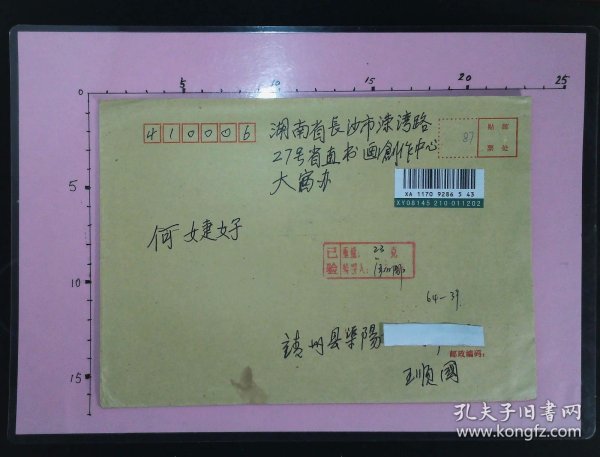 5 10 15 20 25
0
5
10
15
410006
湖南省長沙市溁湾路
27号省直书画創作中心
大富办
87
贴 邮
票 处
XA 1170 9286 5 43
XY08145 210 011202
何婕妤
已验 重量: 23 克
64-37
靖州县渠陽
邮政编码:
王順國
孔夫子旧书网
www.kongfz.com